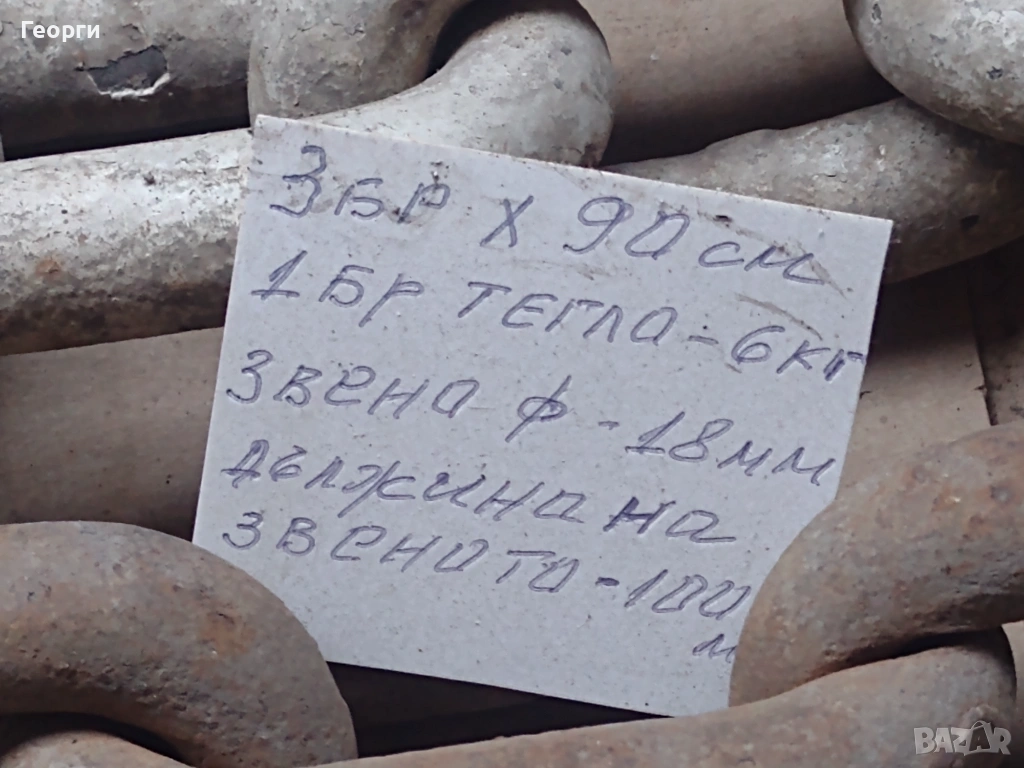 Георги
3 БР Х 90 см
1 БР ТЕГЛА - 6 КГ
ЗВЕНА ф - 18 мм
ДЪЛЖИНА НА
ЗВЕНОТО - 100
м
BAZAR